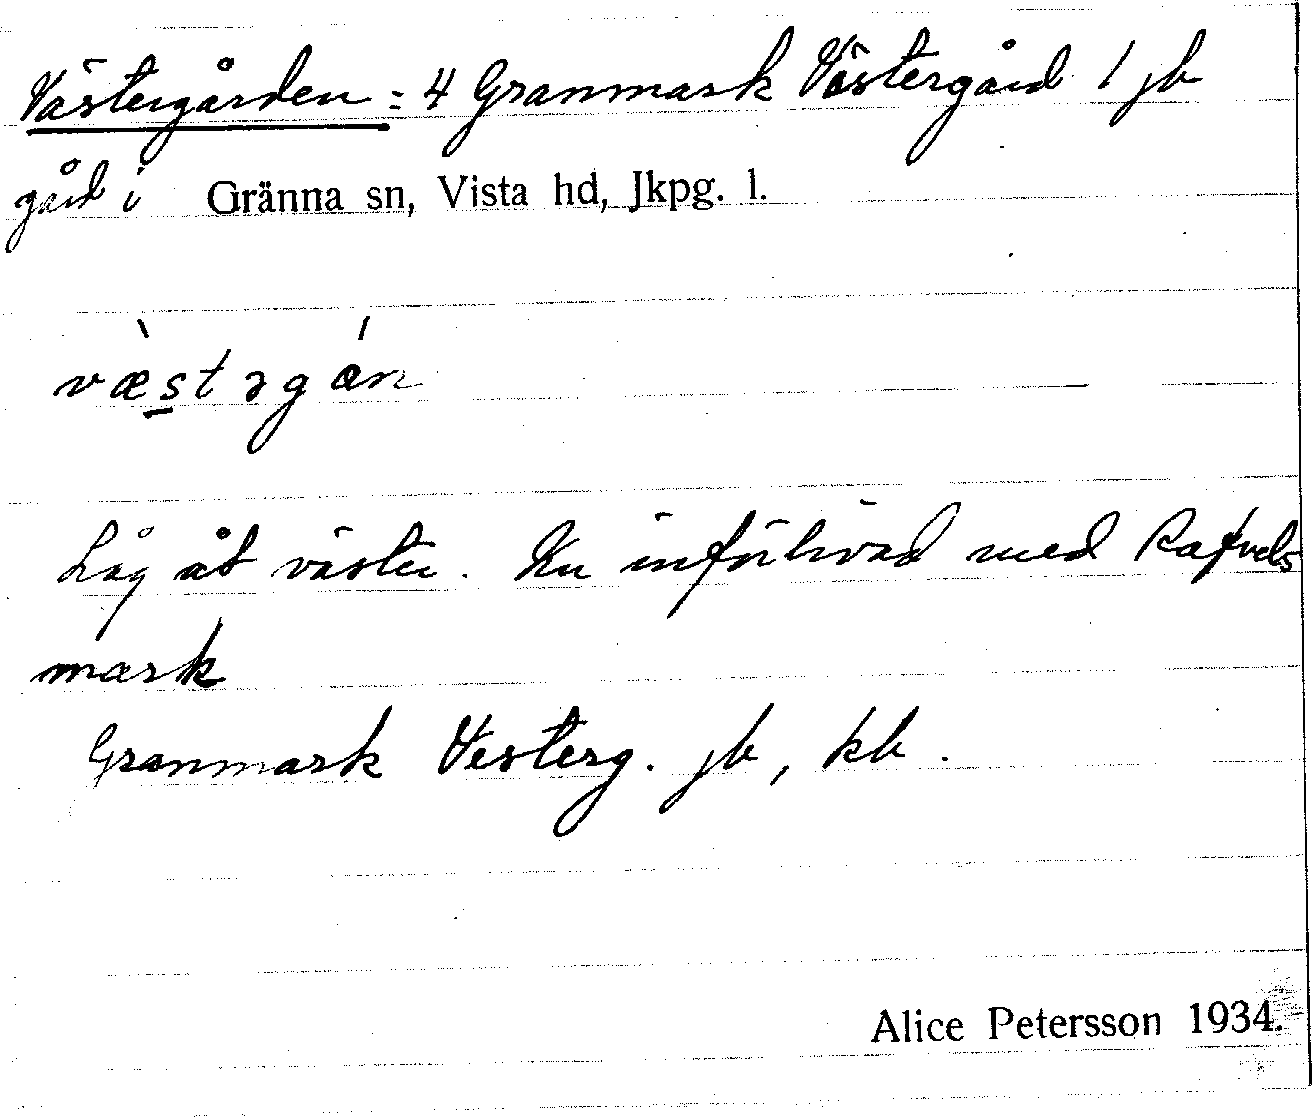 Västergården = 4 Granmark Västergård 1 jb
gård i Gränna sn, Vista hd, Jkpg. l.
væ̀stəgán
Låg åt väster. Nu införlivad med Rafvels
mark
Granmark Vesterg. jb, kb.
Alice Petersson 1934.